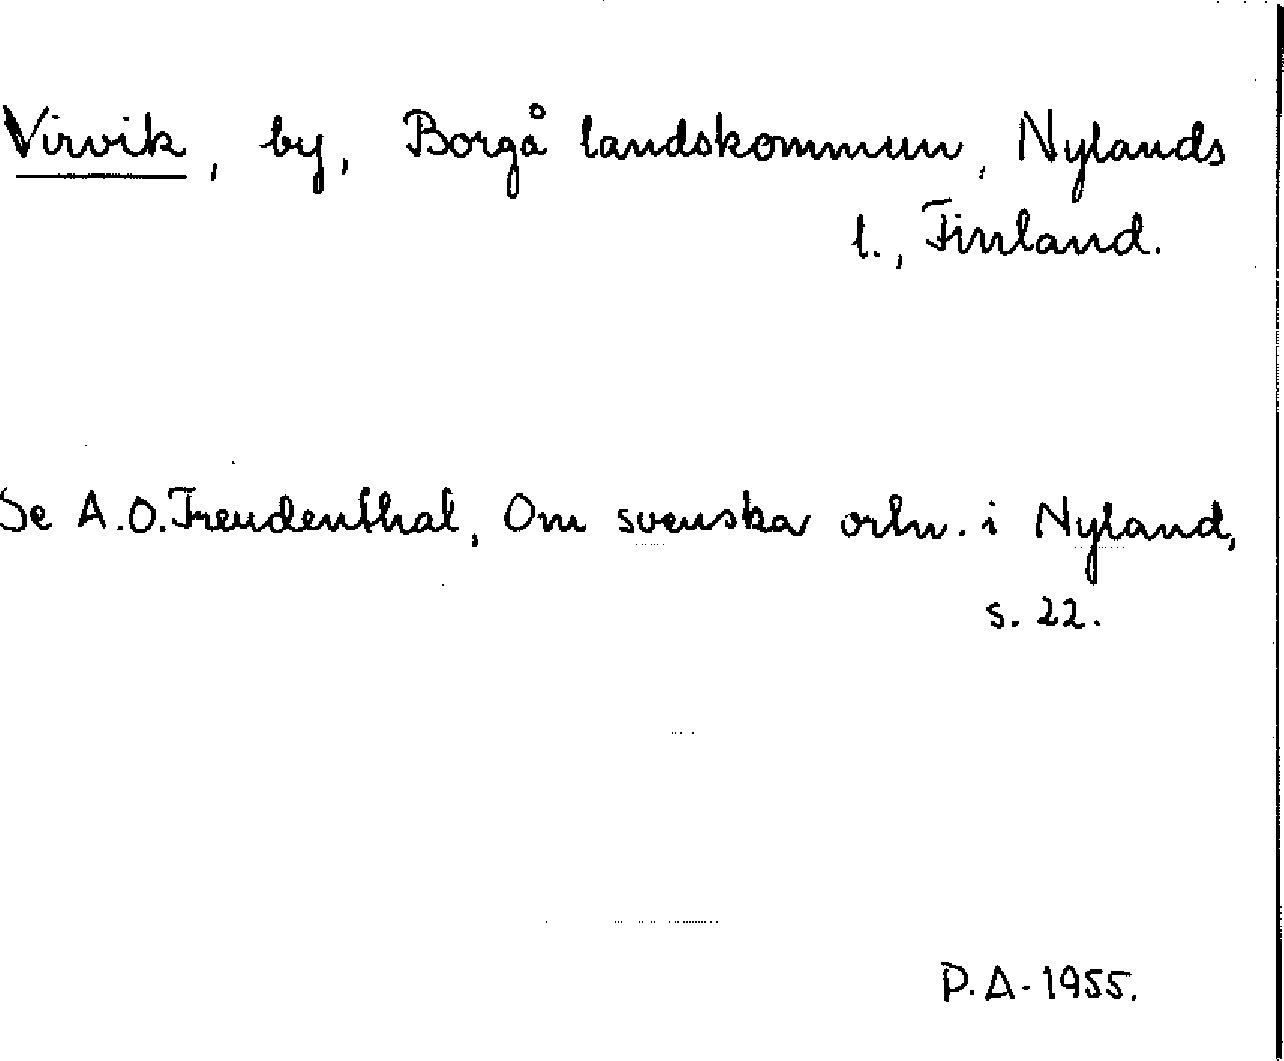 Virvik, by, Borgå landskommun, Nylands
l., Finland.
Se A.O. Freudenthal, Om svenska ortn. i Nyland,
s. 22.
P.A. 1955.